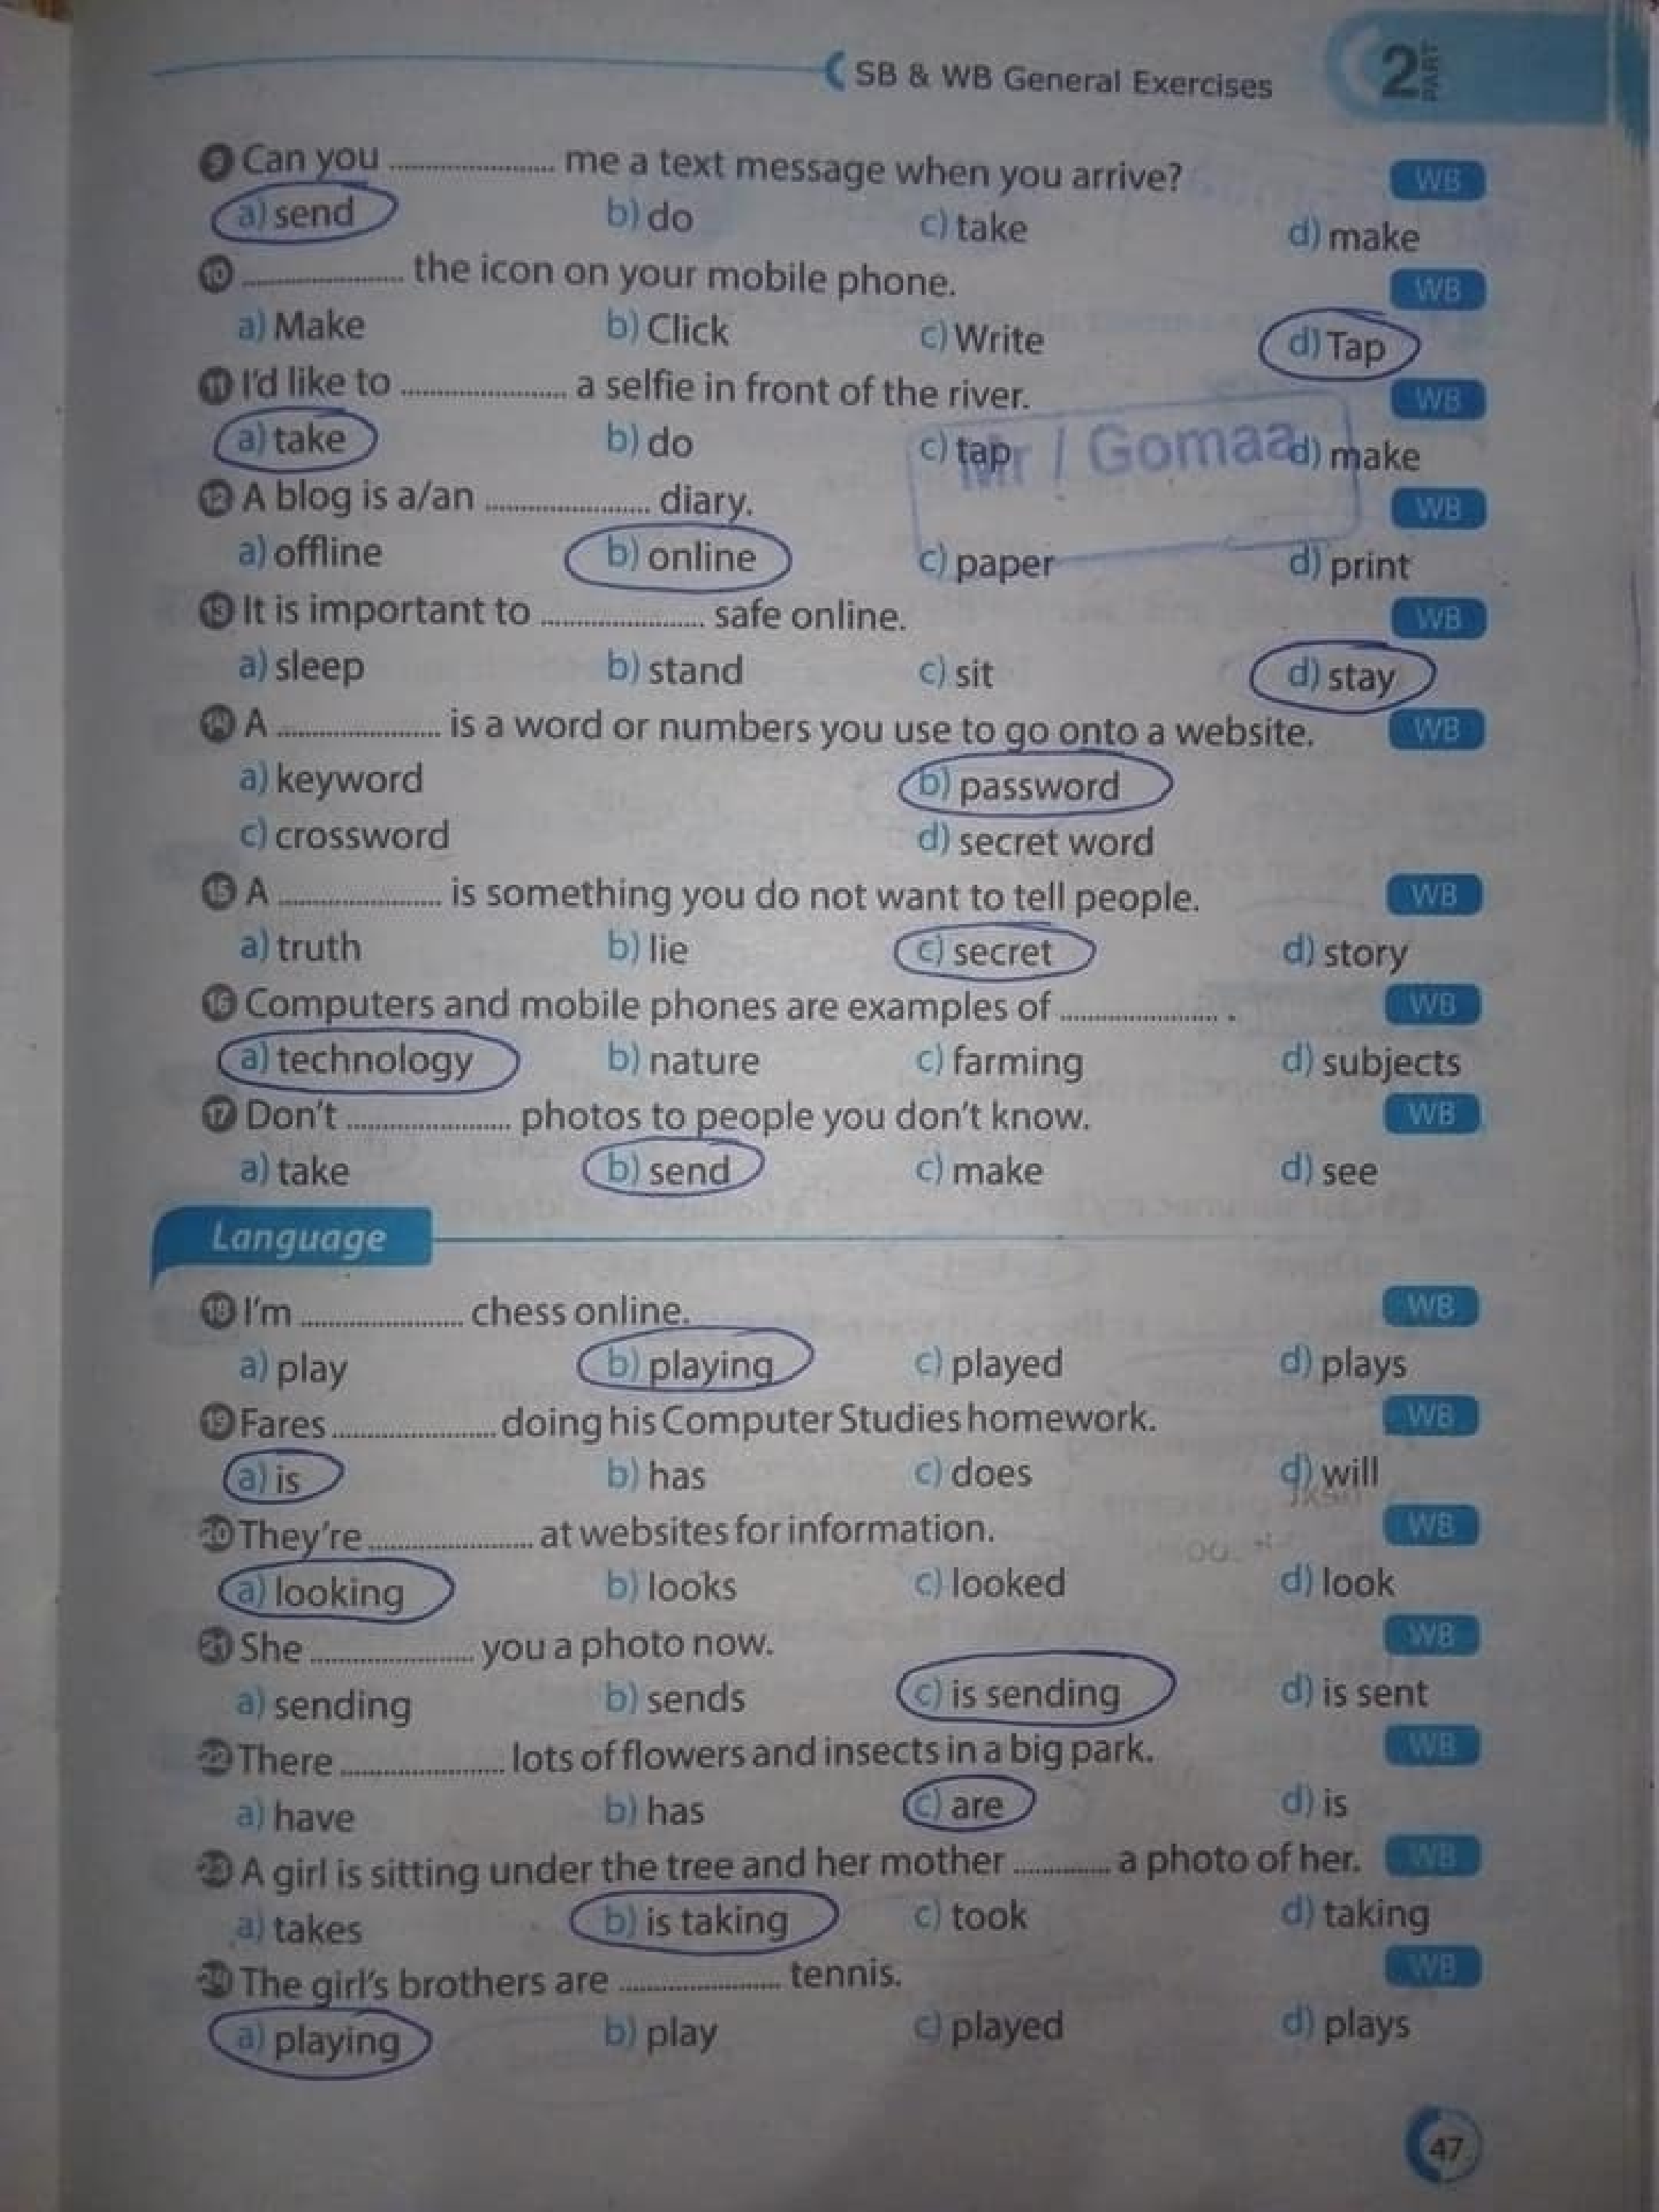 SB & WB General Exercises
2 PART
9 Can you ........................ me a text message when you arrive? WB
a) send b) do c) take d) make
10 ........................ the icon on your mobile phone. WB
a) Make b) Click c) Write d) Tap
11 I'd like to ........................ a selfie in front of the river. WB
a) take b) do c) tap d) make
Mr / Gomaa
12 A blog is a/an ........................ diary. WB
a) offline b) online c) paper d) print
13 It is important to ........................ safe online. WB
a) sleep b) stand c) sit d) stay
14 A ........................ is a word or numbers you use to go onto a website. WB
a) keyword b) password
c) crossword d) secret word
15 A ........................ is something you do not want to tell people. WB
a) truth b) lie c) secret d) story
16 Computers and mobile phones are examples of ........................ . WB
a) technology b) nature c) farming d) subjects
17 Don't ........................ photos to people you don't know. WB
a) take b) send c) make d) see
Language
18 I'm ........................ chess online. WB
a) play b) playing c) played d) plays
19 Fares ........................ doing his Computer Studies homework. WB
a) is b) has c) does d) will
20 They're ........................ at websites for information. WB
a) looking b) looks c) looked d) look
21 She ........................ you a photo now. WB
a) sending b) sends c) is sending d) is sent
22 There ........................ lots of flowers and insects in a big park. WB
a) have b) has c) are d) is
23 A girl is sitting under the tree and her mother .............. a photo of her. WB
a) takes b) is taking c) took d) taking
24 The girl's brothers are ........................ tennis. WB
a) playing b) play c) played d) plays
47